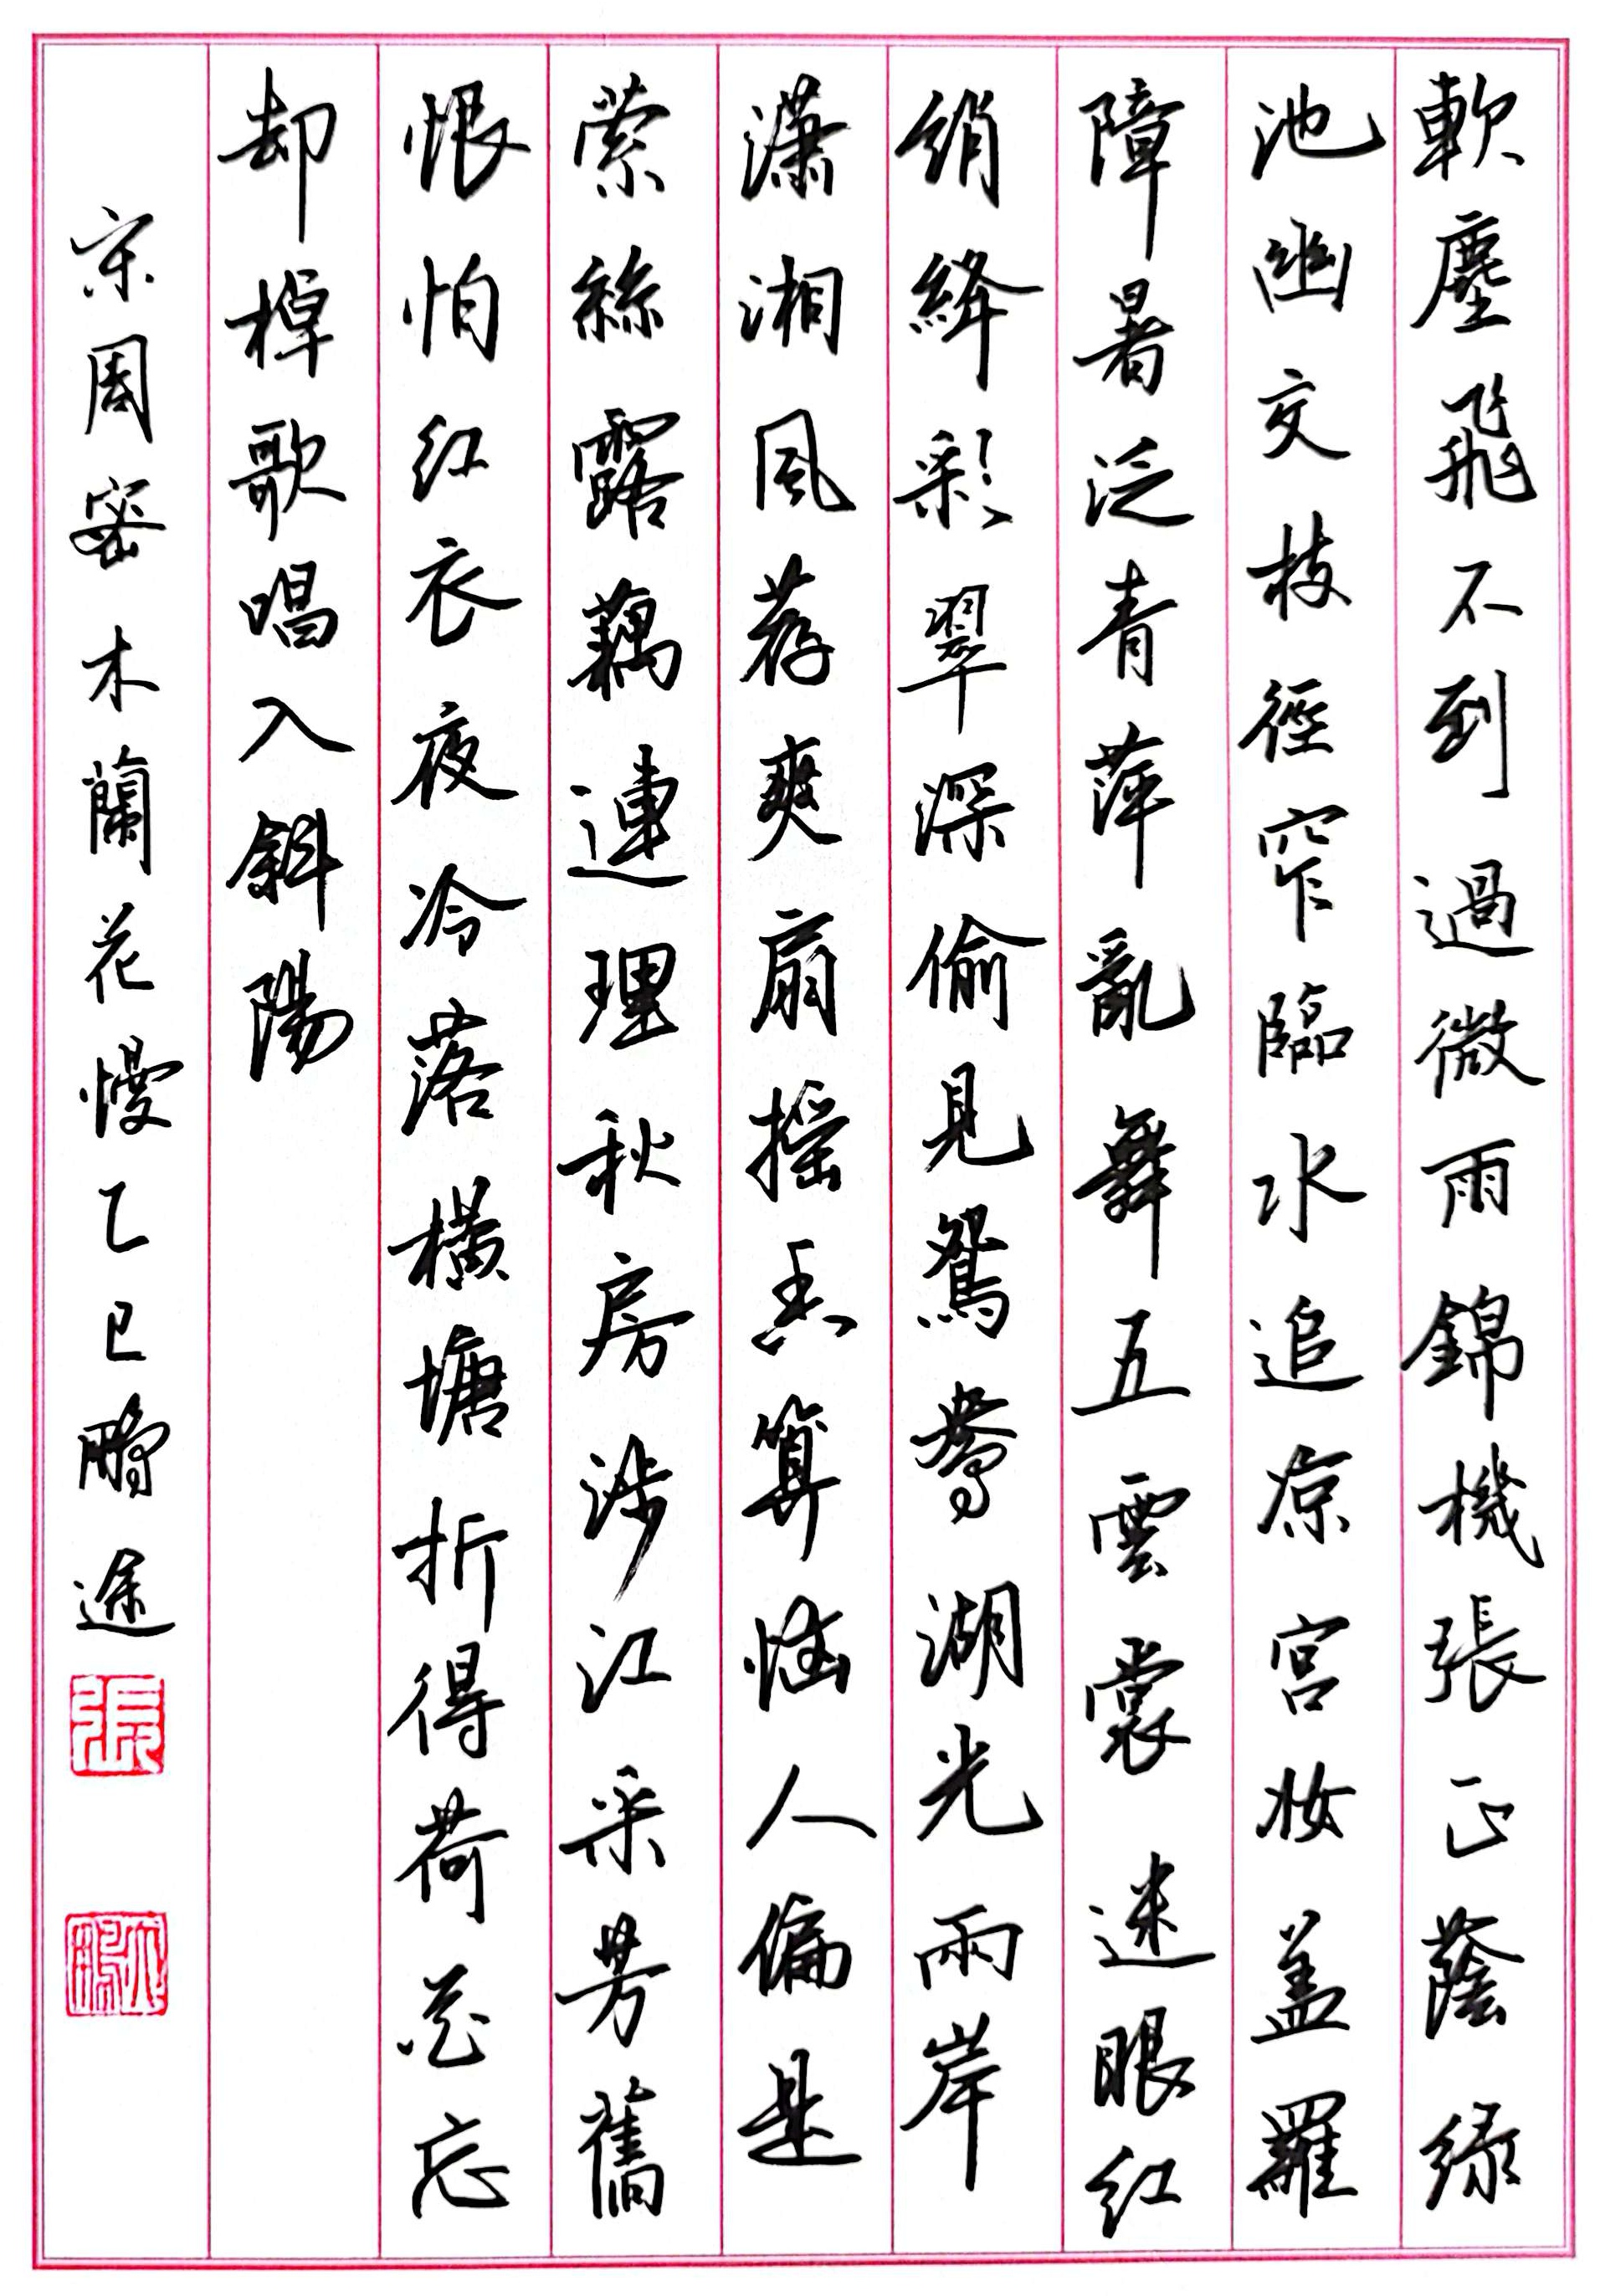 軟塵飛不到過微雨錦機張正蔭綠
池幽交枝徑窄臨水追凉宮妝盖羅
障暑泛青萍亂舞五雲裳迷眼紅
綃絳彩翠深偷見鴛鴦湖光兩岸
瀟湘風荐爽扇搖香算惱人偏是
縈絲露藕連理秋房涉江采芳舊
恨怕紅衣夜冷落橫塘折得荷花忘
却棹歌唱入斜陽
宋周密木蘭花慢乙巳鵬途
張